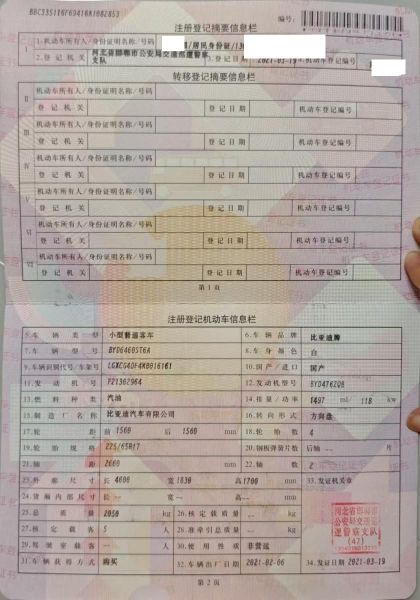 注册登记摘要信息栏
编号:
1.机动车所有人/身份证明名称/号码 /居民身份证/13
2.登记机关 河北省邯郸市公安局交通巡逻警察支队 3.登记日期 2021-03-19 4.机动车登记编号
转移登记摘要信息栏
机动车所有人/身份证明名称/号码
登记机关 登记日期 机动车登记编号
机动车所有人/身份证明名称/号码
登记机关 登记日期 机动车登记编号
机动车所有人/身份证明名称/号码
登记机关 登记日期 机动车登记编号
机动车所有人/身份证明名称/号码
登记机关 登记日期 机动车登记编号
机动车所有人/身份证明名称/号码
登记机关 登记日期 机动车登记编号
机动车所有人/身份证明名称/号码
登记机关 登记日期 机动车登记编号
第1页
注册登记机动车信息栏
5.车辆类型 小型普通客车 6.车辆品牌 比亚迪牌
7.车辆型号 BYD6460ST6A 8.车身颜色 白
9.车辆识别代号/车架号 10.国产/进口 国产
11.发动机号 F21362964 12.发动机型号 BYD476ZQB
13.燃料种类 汽油 14.排量/功率 1497 ml/ 118 kw
15.制造厂名称 比亚迪汽车有限公司 16.转向形式 方向盘
17.轮距 前 1560 后 1560 mm 18.轮胎数 4
19.轮胎规格 225/65R17 20.钢板弹簧片数 后轴 -- 片
21.轴距 2660 mm 22.轴数 2
23.外廓尺寸 长 4600 宽 1830 高 1700 mm 33.发证机关章
24.货厢内部尺寸 长 -- 宽 -- 高 -- mm
25.总质量 2050 kg 26.核定载质量 -- kg
27.核定载客 5 人 28.准牵引总质量 -- kg
29.驾驶室载客 -- 人 30.使用性质 非营运
31.车辆获得方式 购买 32.车辆出厂日期 2021-02-06 34.发证日期 2021-03-19
河北省邯郸市
公安局交通巡
逻警察支队
(47)
第2页